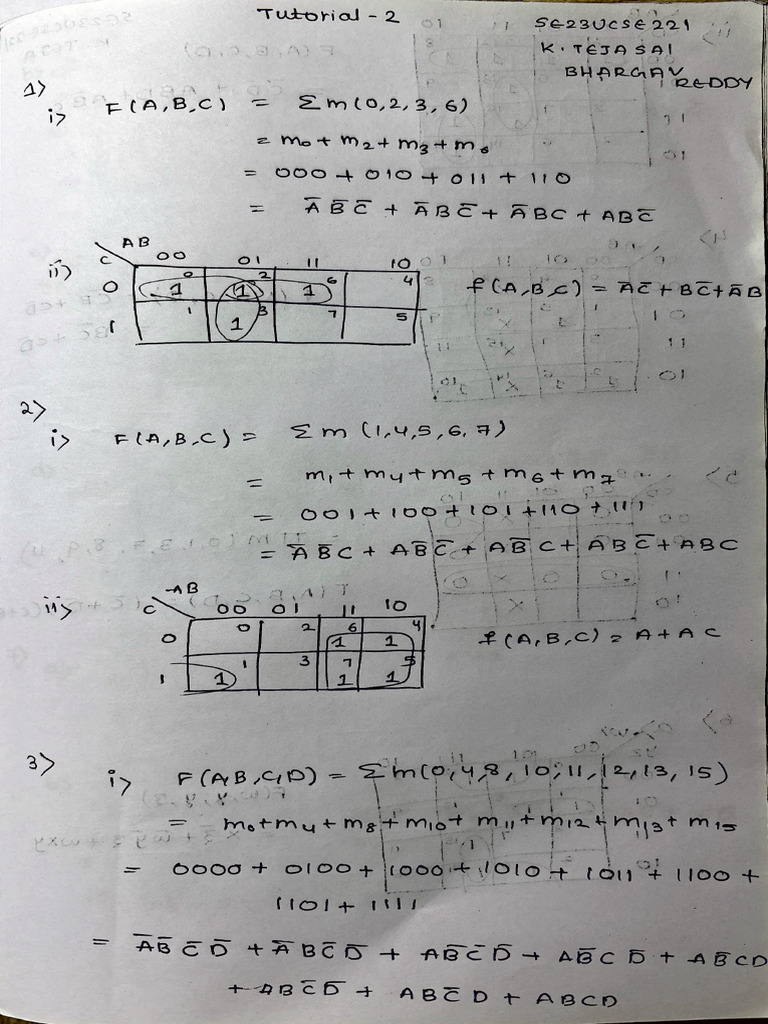 Tutorial - 2
SE23UCSE221
K. TEJA SAI
BHARGAV REDDY
1>
i> F(A,B,C) = Σm(0,2,3,6)
= m₀ + m₂ + m₃ + m₆
= 000 + 010 + 011 + 110
= A̅ B̅ C̅ + A̅ B C̅ + A̅ B C + A B C̅
ii> C AB 00 01 11 10
0 1 0 1 2 1 6 4
1 1 1 3 7 5
f(A,B,C) = A̅C̅ + BC̅ + A̅B
2>
i> F(A,B,C) = Σm (1,4,5,6,7)
= m₁ + m₄ + m₅ + m₆ + m₇
= 001 + 100 + 101 + 110 + 111
= A̅ B̅ C + A B̅ C̅ + A B̅ C + A B C̅ + A B C
ii> C AB 00 01 11 10
0 0 2 6 1 4 1
1 1 1 3 7 1 5 1
f(A,B,C) = A + A C
3>
i> F(A,B,C,D) = Σm(0,4,8,10,11,12,13,15)
= m₀ + m₄ + m₈ + m₁₀ + m₁₁ + m₁₂ + m₁₃ + m₁₅
= 0000 + 0100 + 1000 + 1010 + 1011 + 1100 +
1101 + 1111
= A̅ B̅ C̅ D̅ + A̅ B C̅ D̅ + A B̅ C̅ D̅ + A B̅ C D̅ + A B̅ C D
+ A B C̅ D̅ + A B C̅ D + A B C D